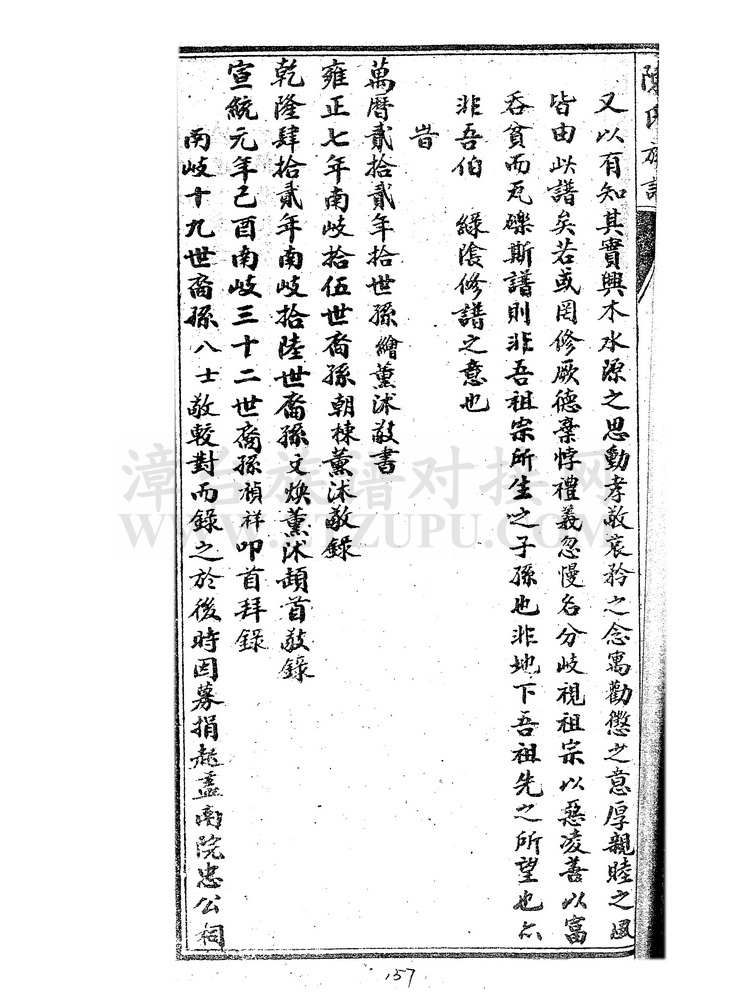 陳氏族譜
又以有知其實興木水源之思動孝敬哀矜之念寓勸懲之意厚親睦之風
皆由此譜矣若或罔修厥德棄悖禮義忽慢名分歧視祖宗以惡凌善以富
吞貧而瓦礫斯譜則非吾祖宗所生之子孫也非地下吾祖先之所望也亦
非吾伯 綠陰修譜之意也
昔
萬曆貳拾貳年拾世孫繪薰沐敬書
雍正七年南岐拾伍世裔孫朝棟薰沐敬錄
乾隆肆拾貳年南岐拾陸世裔孫文煥薰沐頓首敬錄
宣統元年己酉南岐三十二世裔孫禎祥叩首拜錄
南岐十九世裔孫八士敬較對而錄之於後時因募捐起蓋南院忠公祠
漳台族譜对接网
WWW.ZTZUPU.COM
157